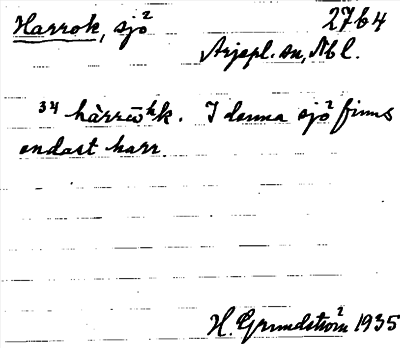 Harrok, sjö 2764
Arjepl. sn, Lbl.
34 hàrrōhk. I denna sjö finns
endast harr.
H. Grundström 1935